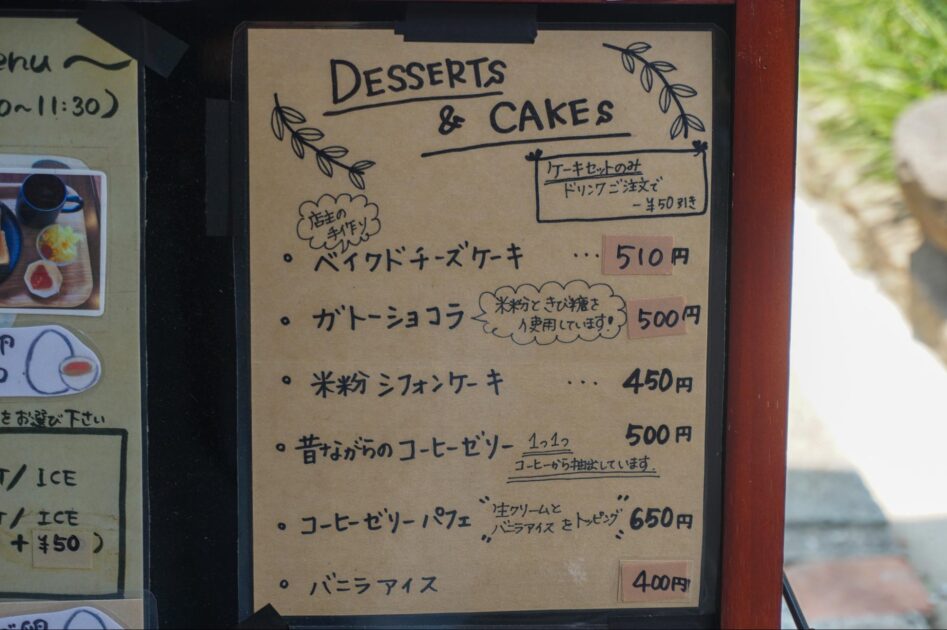 enu
0~11:30)
をお選び下さい
T/ ICE
T/ ICE
+ ¥50 )
DESSERTS
& CAKES
ケーキセットのみ
ドリンクご注文で
-¥50引き
店主の
手作り
• ベイクドチーズケーキ ... 510円
• ガトーショコラ 米粉ときび糖を 500円
使用しています!
• 米粉シフォンケーキ ... 450円
• 昔ながらのコーヒーゼリー 1つ1つ 500円
コーヒーから抽出しています。
• コーヒーゼリーパフェ "生クリームと 650円
バニラアイスをトッピング"
• バニラアイス 400円